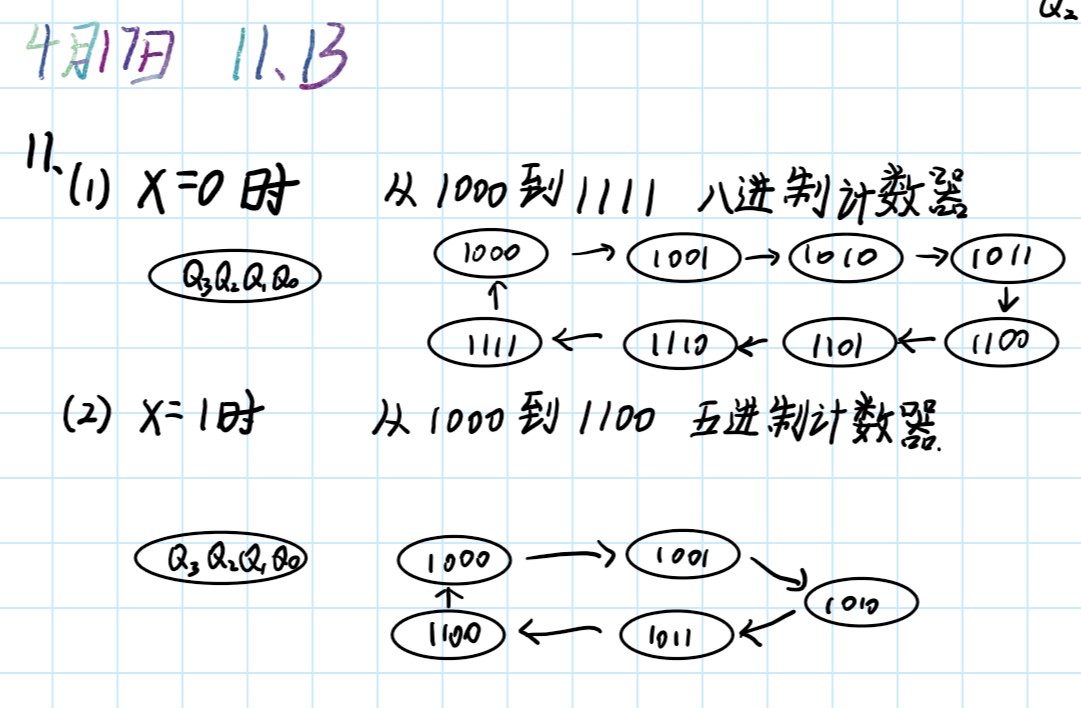 Q₂
4月17日 11、13
11、(1) X=0 时 从 1000 到 1111 八进制计数器
Q₃Q₂Q₁Q₀ 1000 → 1001 → 1010 → 1011
↑ ↓
1111 ← 1110 ← 1101 ← 1100
(2) X=1时 从 1000 到 1100 五进制计数器.
Q₃Q₂Q₁Q₀ 1000 → 1001
↑ 1010
1100 ← 1011